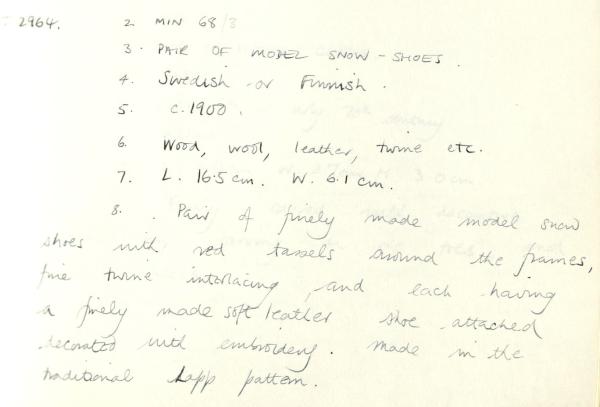 2964. 2. MIN 68/3
3. PAIR OF MODEL SNOW-SHOES.
4. Swedish or Finnish.
5. c.1900.
6. Wood, wool, leather, twine etc.
7. L. 16.5 cm. W. 6.1 cm.
8. Pair of finely made model snow
shoes with red tassels around the frames,
fine twine interlacing, and each having
a finely made soft leather shoe attached
decorated with embroidery. Made in the
traditional Lapp pattern.